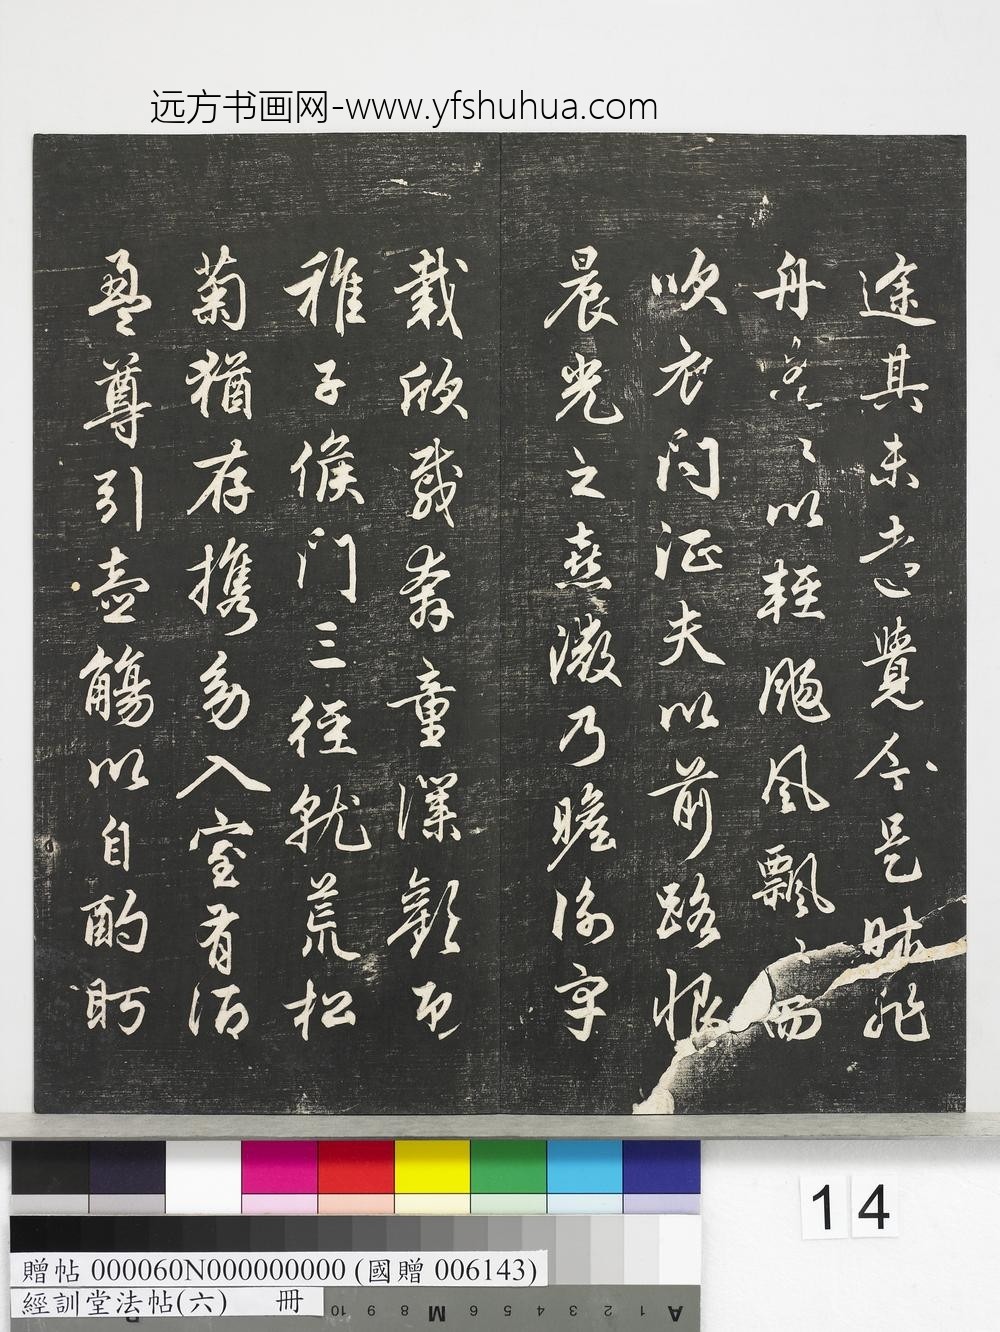 远方书画网-www.yfshuhua.com
途其未遠覺今是昨非
舟遙〻以輕颺風飄〻而
吹衣問征夫以前路恨
晨光之熹微乃瞻衡宇
載欣載奔童僕歡迎
稚子候門三徑就荒松
菊猶存携幼入室有酒
盈尊引壺觴以自酌眄
14
贈帖 000060N000000000 (國贈 006143)
經訓堂法帖(六) 冊
10 9 8 M 6 5 4 3 2 1 A